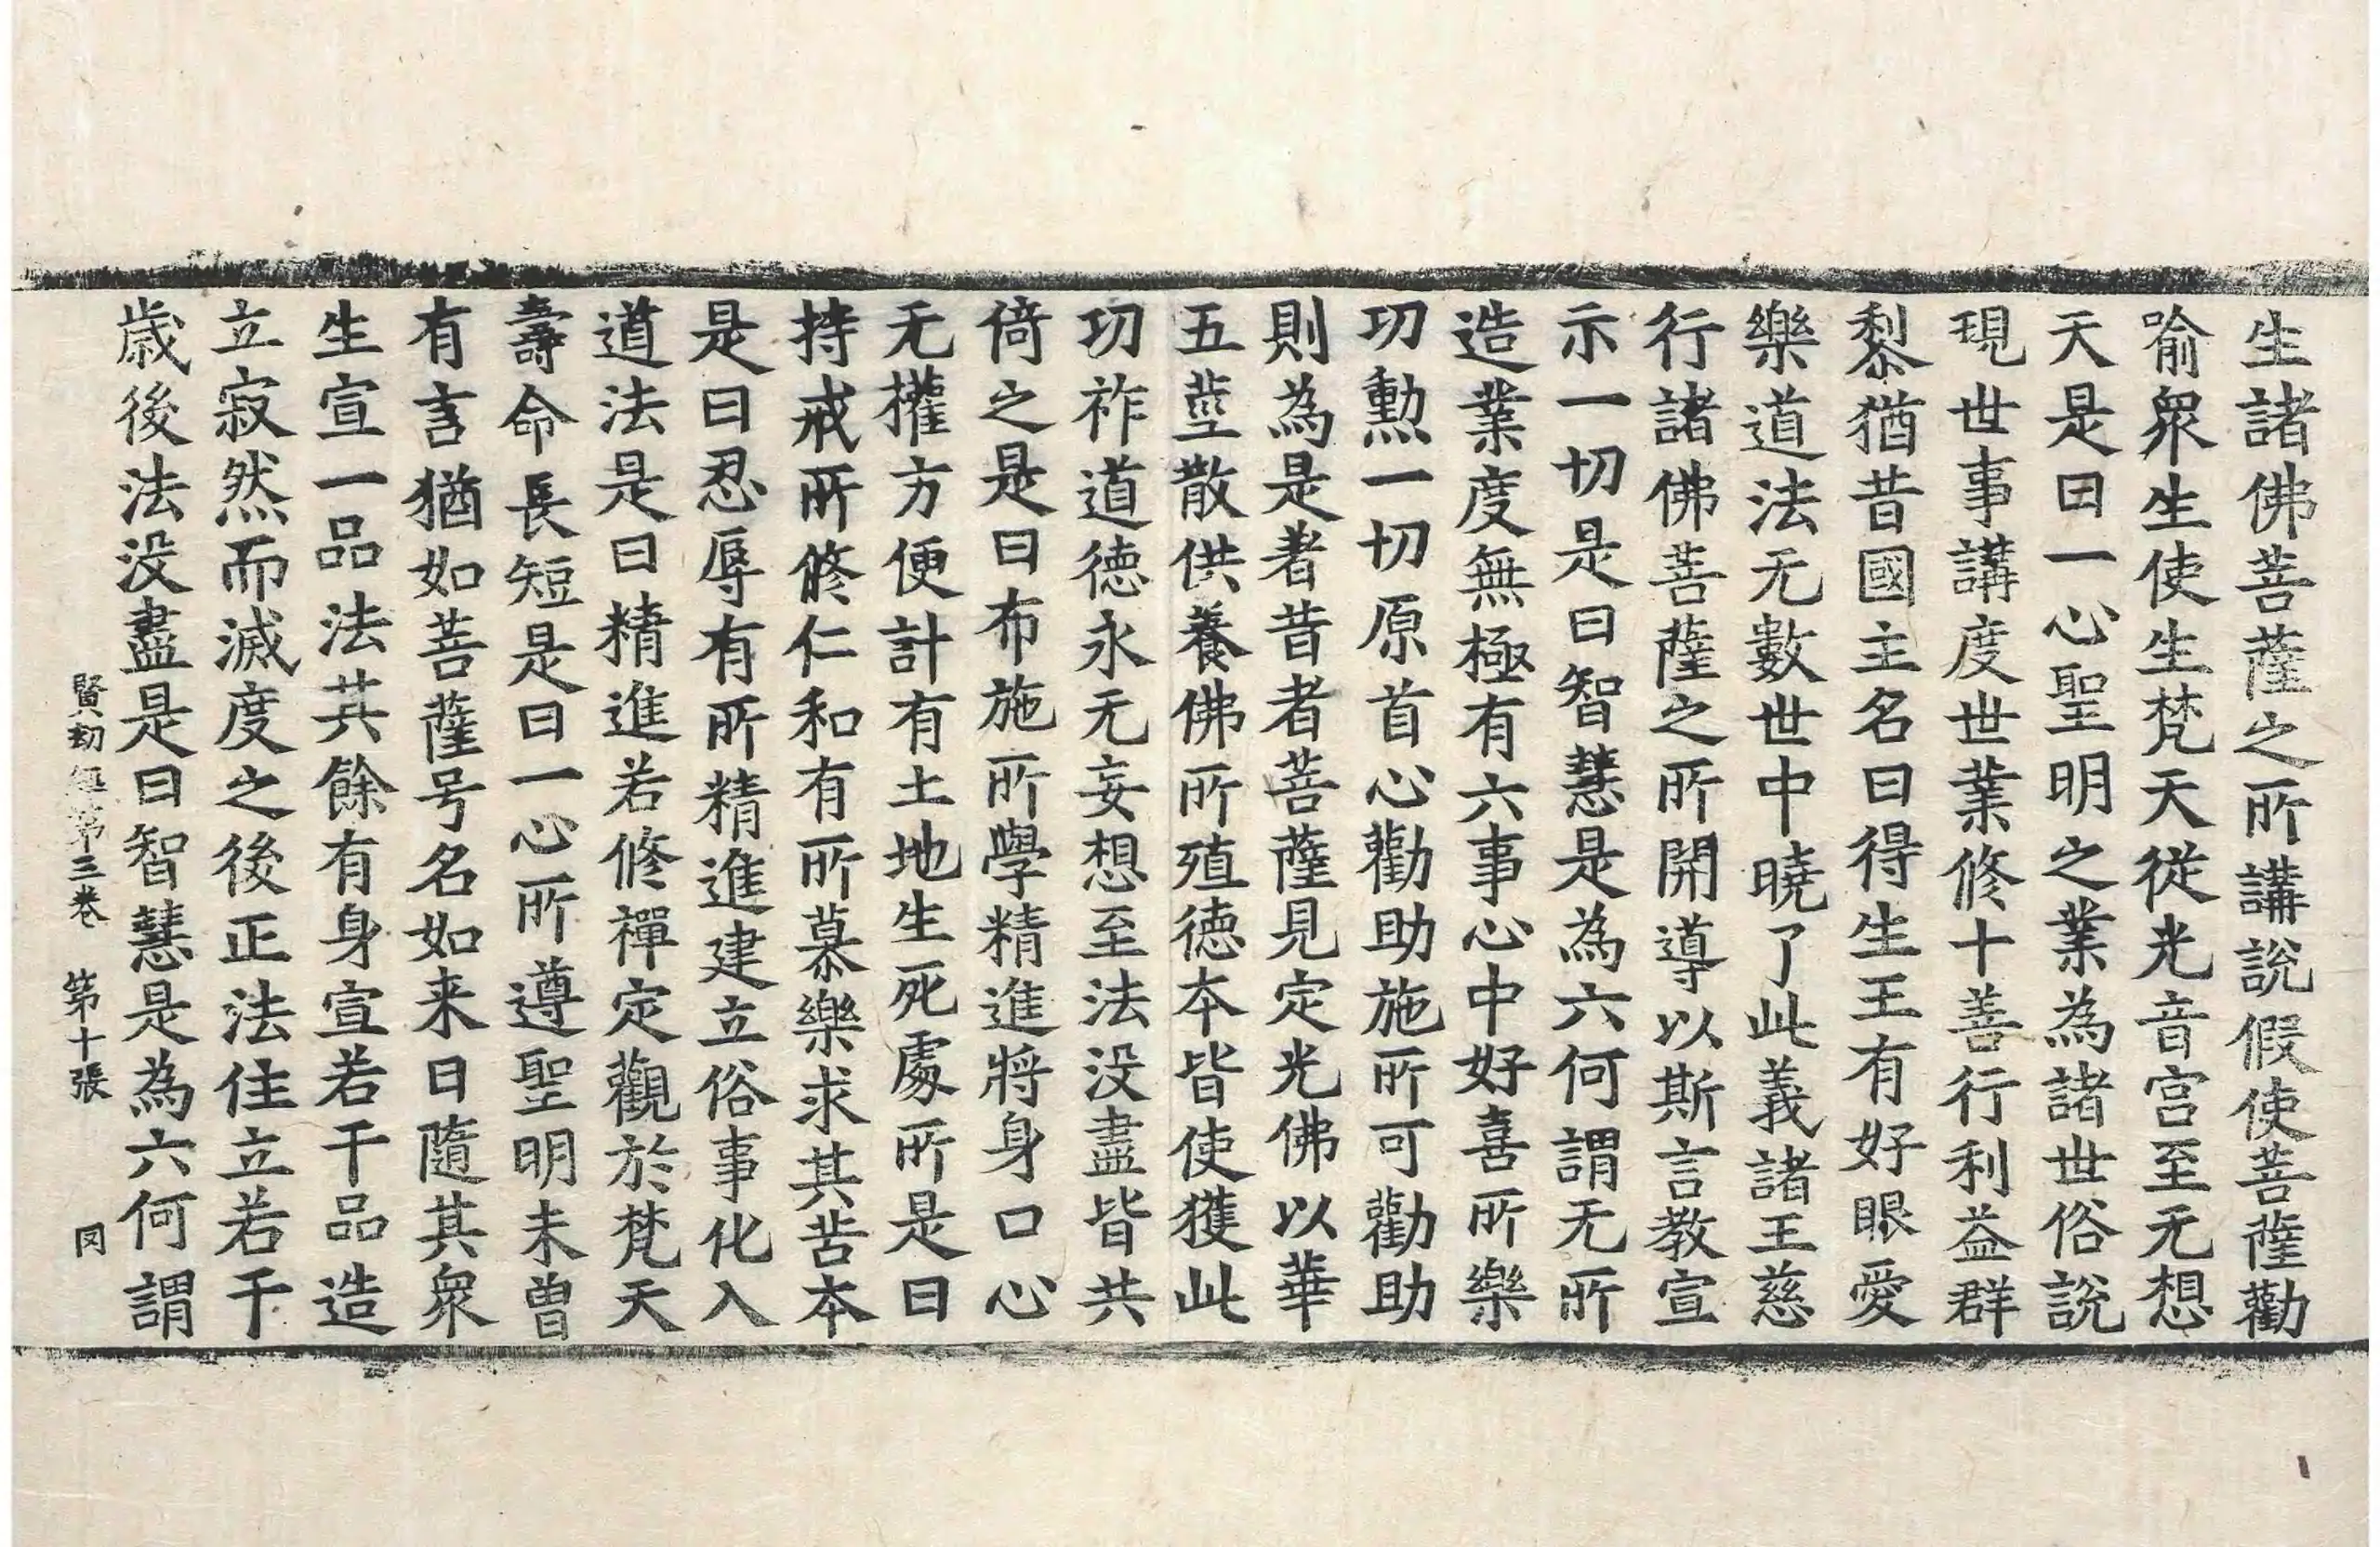 生諸佛菩薩之所講說假使菩薩勸
喻衆生使生梵天從光音宫至无想
天是曰一心聖明之業為諸世俗說
現世事講度世業修十善行利益群
黎猶昔國主名曰得生王有好眼愛
樂道法无數世中曉了此義諸王慈
行諸佛菩薩之所開導以斯言教宣
示一切是曰智慧是為六何謂无所
造業度無極有六事心中好喜所樂
功勲一切原首心勸助施所可勸助
則為是者昔者菩薩見定光佛以華
五莖散供養佛所殖德本皆使獲此
功祚道德永无妄想至法没盡皆共
倚之是曰布施所學精進將身口心
无權方便計有土地生死處所是曰
持戒所修仁和有所慕樂求其苦本
是曰忍辱有所精進建立俗事化入
道法是曰精進若修禪定觀於梵天
壽命長短是曰一心所遵聖明未曾
有言猶如菩薩号名如来日隨其衆
生宣一品法其餘有身宣若干品造
立寂然而滅度之後正法住立若干
歲後法没盡是曰智慧是為六何謂
賢劫經第三卷 第十張 同